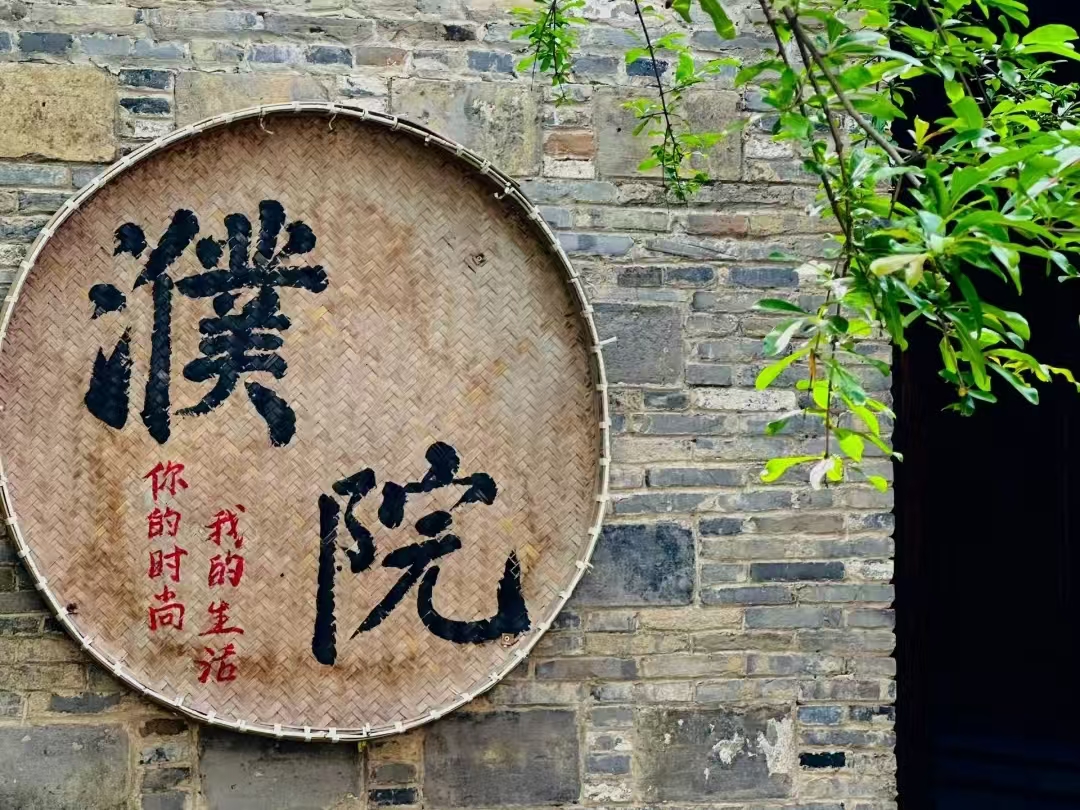 濮院
你的时尚
我的生活